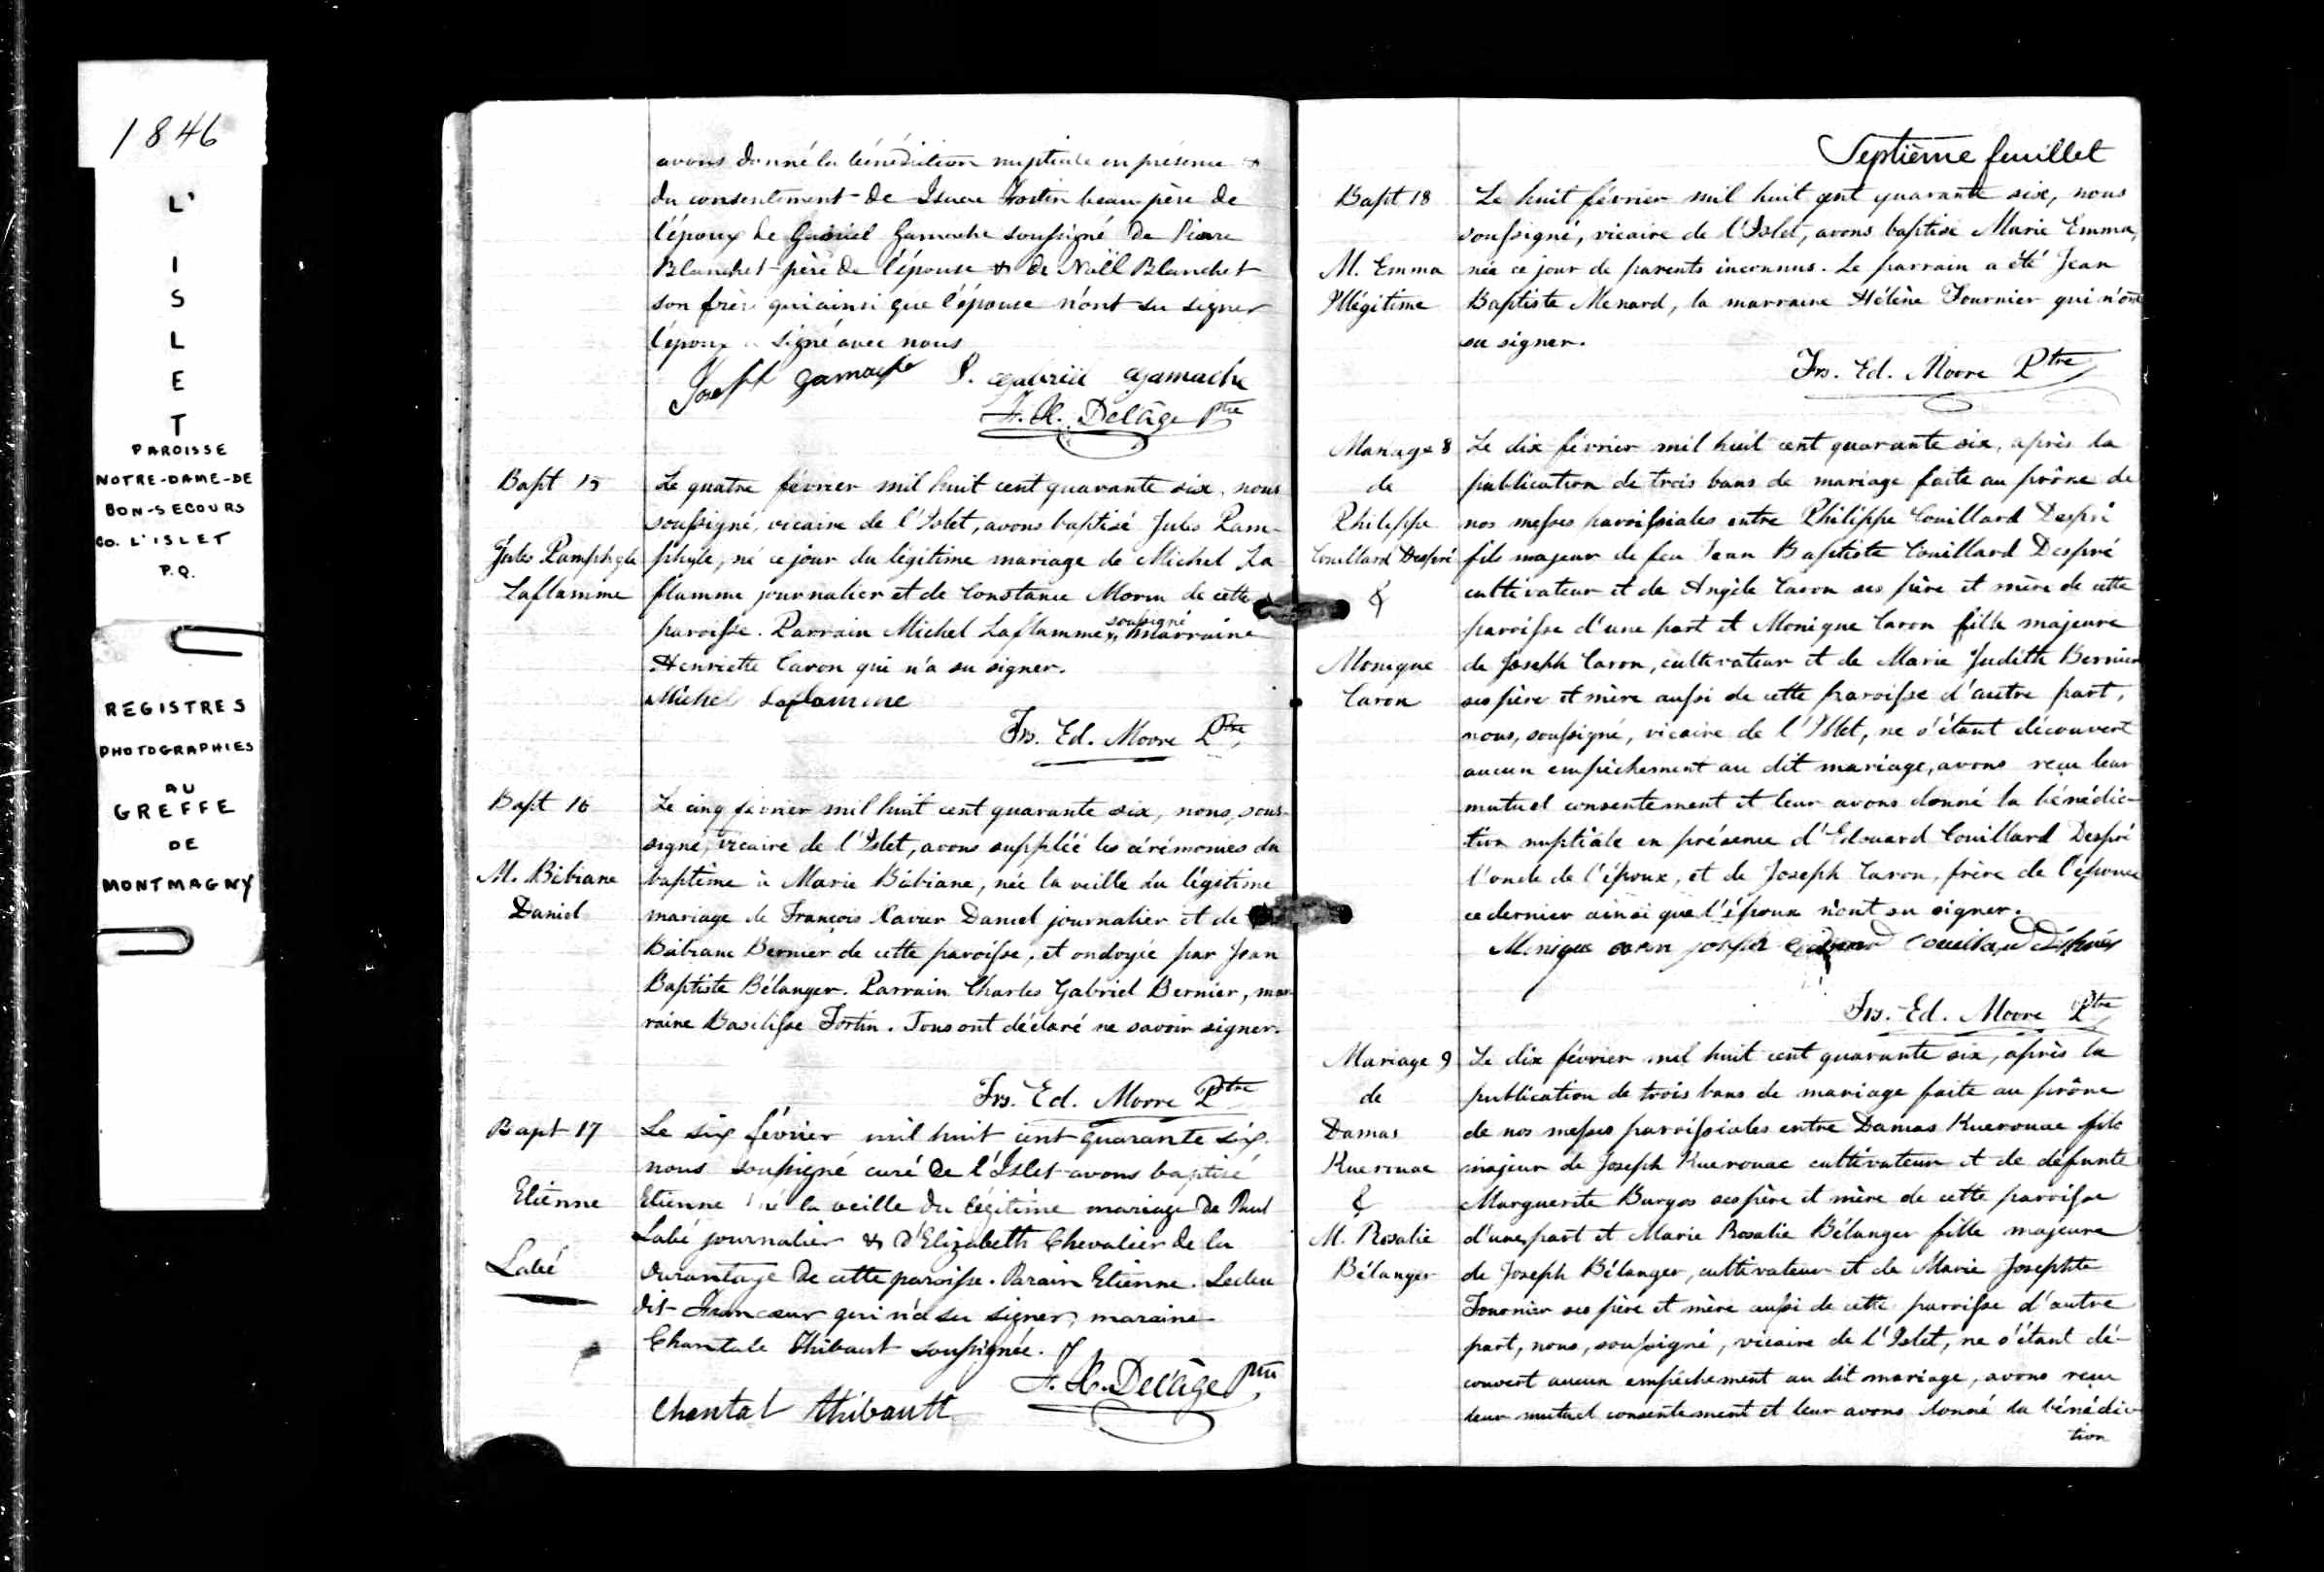 1846
L'
I
S
L
E
T
PAROISSE
NOTRE-DAME-DE
BON-SECOURS
CO. L'ISLET
P.Q.
REGISTRES
PHOTOGRAPHIES
AU
GREFFE
DE
MONTMAGNY
avons donné la bénédiction nuptiale en présence &
du consentement de Fortin beau-père de
l'époux de Gabriel Gamache soussigné de Pierre
Blanchet père de l'épouse & de Noël Blanchet
son frère qui ainsi que l'épouse n'ont su signer
l'époux a signé avec nous
Joseph Gamache P. Gabriel Gamache
F. X. Delâge Ptre
Bapt 15
Jules Pamphyle
Laflamme
Le quatre février mil huit cent quarante six, nous
soussigné, vicaire de l'Islet, avons baptisé Jules Pam-
phyle, né ce jour du légitime mariage de Michel La
flamme journalier et de Constance Morin de cette
paroisse. Parrain Michel Laflamme soussigné, marraine
Henriette Caron qui n'a su signer.
Michel Laflamme
Frs. Ed. Moore Ptre
Bapt 16
M. Bibiane
Daniel
Le cinq février mil huit cent quarante six, nous, sous-
signé, vicaire de l'Islet, avons suppléé les cérémonies du
baptême à Marie Bibiane, née la veille du légitime
mariage de François Xavier Daniel journalier et de
Bibiane Bernier de cette paroisse, et ondoyée par Jean
Baptiste Bélanger. Parrain Charles Gabriel Bernier, mar-
raine Basilisse Fortin. Tous ont déclaré ne savoir signer.
Frs. Ed. Moore Ptre
Bapt 17
Etienne
Labé
Le six février mil huit cent quarante six.
nous soussigné curé de l'Islet avons baptisé
Etienne né la veille du légitime mariage de Paul
Labé journalier & d'Elizabeth Chevalier de la
devantage de cette paroisse. Parain Etienne Leclerc
dit Francoeur qui n'a su signer, maraine
Chantale Thibault soussignée.
Chantal Thibault
F. X. Delâge Ptre
Septième feuillet
Bapt 18
M. Emma
Illégitime
Le huit février mil huit cent quarante six, nous
soussigné, vicaire de l'Islet, avons baptisé Marie Emma,
née ce jour de parents inconnus. Le parrain a été Jean
Baptiste Menard, la marraine Hélène Fournier qui n'ont
su signer.
Frs. Ed. Moore Ptre
Mariage 8
de
Philippe
Couillard Despré
&
Monique
Caron
Le dix février mil huit cent quarante six, après la
publication de trois bans de mariage faite au prône de
nos messes paroissiales entre Philippe Couillard Despré
fils majeur de feu Jean Baptiste Couillard Despré
cultivateur et de Angèle Caron ses père et mère de cette
paroisse d'une part et Monique Caron fille majeure
de Joseph Caron, cultivateur et de Marie Judith Bernier
ses père et mère aussi de cette paroisse d'autre part,
nous, soussigné, vicaire de l'Islet, ne s'étant découvert
aucun empêchement au dit mariage, avons reçu leur
mutuel consentement et leur avons donné la bénédic-
tion nuptiale en présence d'Edouard Couillard Despré
l'oncle de l'époux, et de Joseph Caron, frère de l'épouse
ce dernier ainsi que l'époux n'ont su signer.
Monique caron joseph Couillard Déspres
Frs. Ed. Moore Ptre
Mariage 9
de
Damas
Kuerouac
&
M. Rosalie
Bélanger
Le dix février mil huit cent quarante six, après la
publication de trois bans de mariage faite au prône
de nos messes paroissiales entre Damas Kuerouac fils
majeur de Joseph Kuerouac cultivateur et de defunte
Marguerite Burgos ses père et mère de cette paroisse
d'une part et Marie Rosalie Bélanger fille majeure
de Joseph Bélanger, cultivateur et de Marie Josephte
Fournier ses père et mère aussi de cette paroisse d'autre
part, nous, soussigné, vicaire de l'Islet, ne s'étant dé-
couvert aucun empêchement au dit mariage, avons reçu
leur mutuel consentement et leur avons donné la bénédic
tion